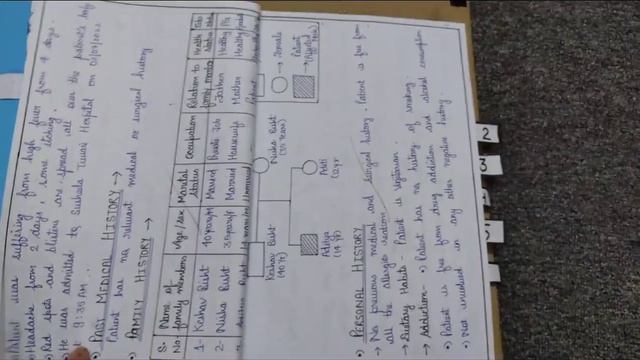 Patient was suffering from high fever from 4 days.
Headache from 2 days, some itching.
Red spots and blisters are spread all over the patient's body
He was admitted to Sushila Tiwari Hospital on
at 9:35 AM.
PAST MEDICAL HISTORY →
Patient has no relevant medical or surgical history
FAMILY HISTORY →
S. No. Name of family members Age/sex Marital Status Occupation Relation to family member Health Status
1- Keshav Bisht 40 years/M Married Job Father Healthy
2- Nisha Bisht 35 years/F Married Housewife Mother Healthy
→ Female
Patient
Keshav Bisht
Nisha Bisht
Aditya
PERSONAL HISTORY
→ No previous medical and surgical history. Patient is free from
all the allergic reactions.
→ Dietary Habits - Patient is vegetarian.
→ Addiction - Patient has no history of smoking.
Patient is free from drug addiction and alcohol consumption
Not involved in any other negative history.
2
3